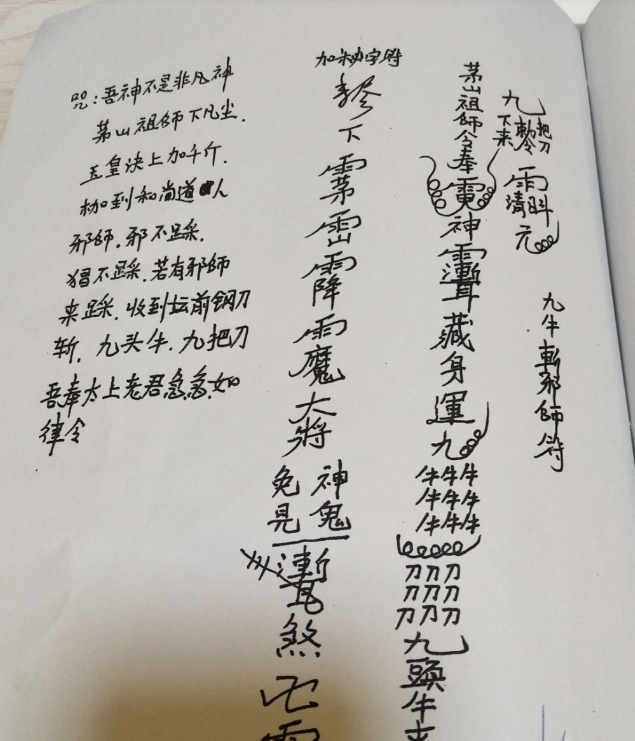 九牛斬邪師符
九把刀
下来
雨
清
元
茅山祖師令奉
神
藏身運九
牛牛牛
牛牛牛
牛牛牛
刀刀刀
刀刀刀
刀刀刀
九頭牛来
字符
下
降
魔
大將
神鬼
免見
煞
咒:吾神不是非凡神
茅山祖師下凡尘.
五皇决上加千斤.
枷到和尚道人
邪師.邪不踩.
猖不踩.若有邪師
来踩.收到坛前钢刀
斩,九头牛.九把刀
吾奉太上老君急急.如
律令